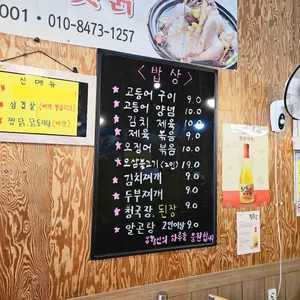 001 · 010-8473-1257
신 메뉴
삼겹살
찜닭, 닭도리탕 (예약)
< 밥 상 >
고등어 구이 9.0
고등어 양념 10.0
김치 제육 10.0
제육 볶음 9.0
오징어 볶음 10.0
오삼불고기 (2인) 19.0
김치찌개 9.0
두부찌개 9.0
청국장, 된장 9.0
알곤탕 2인이상 9.0
하루를 응원합니다